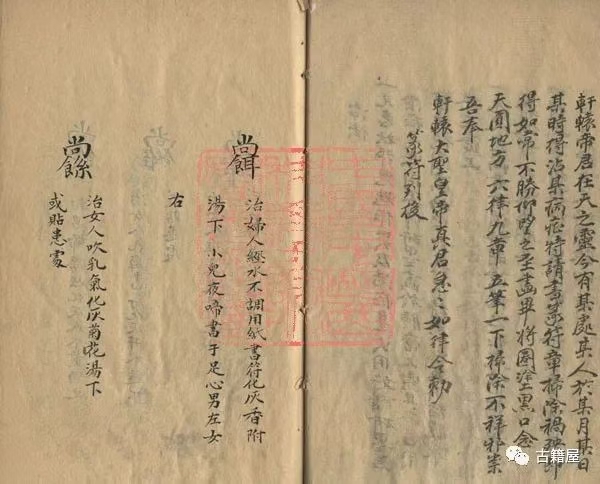 軒轅帝君在天之靈今有某處某人於某月某日
某時得沾某病症特請書篆符章掃除禍殃即
得如常不勝仰望之至畫畢將圈塗黑口念
天圓地方六律九章五筆一下掃除不祥邪祟
吾奉
軒轅大聖皇帝真君急々如律令勅
篆符列後
治婦人經水不調用紙書符化灰香附
湯下 小兒夜啼書于足心男左女
右
治女人吹乳氣化灰菊花湯下
或貼患處
古籍屋